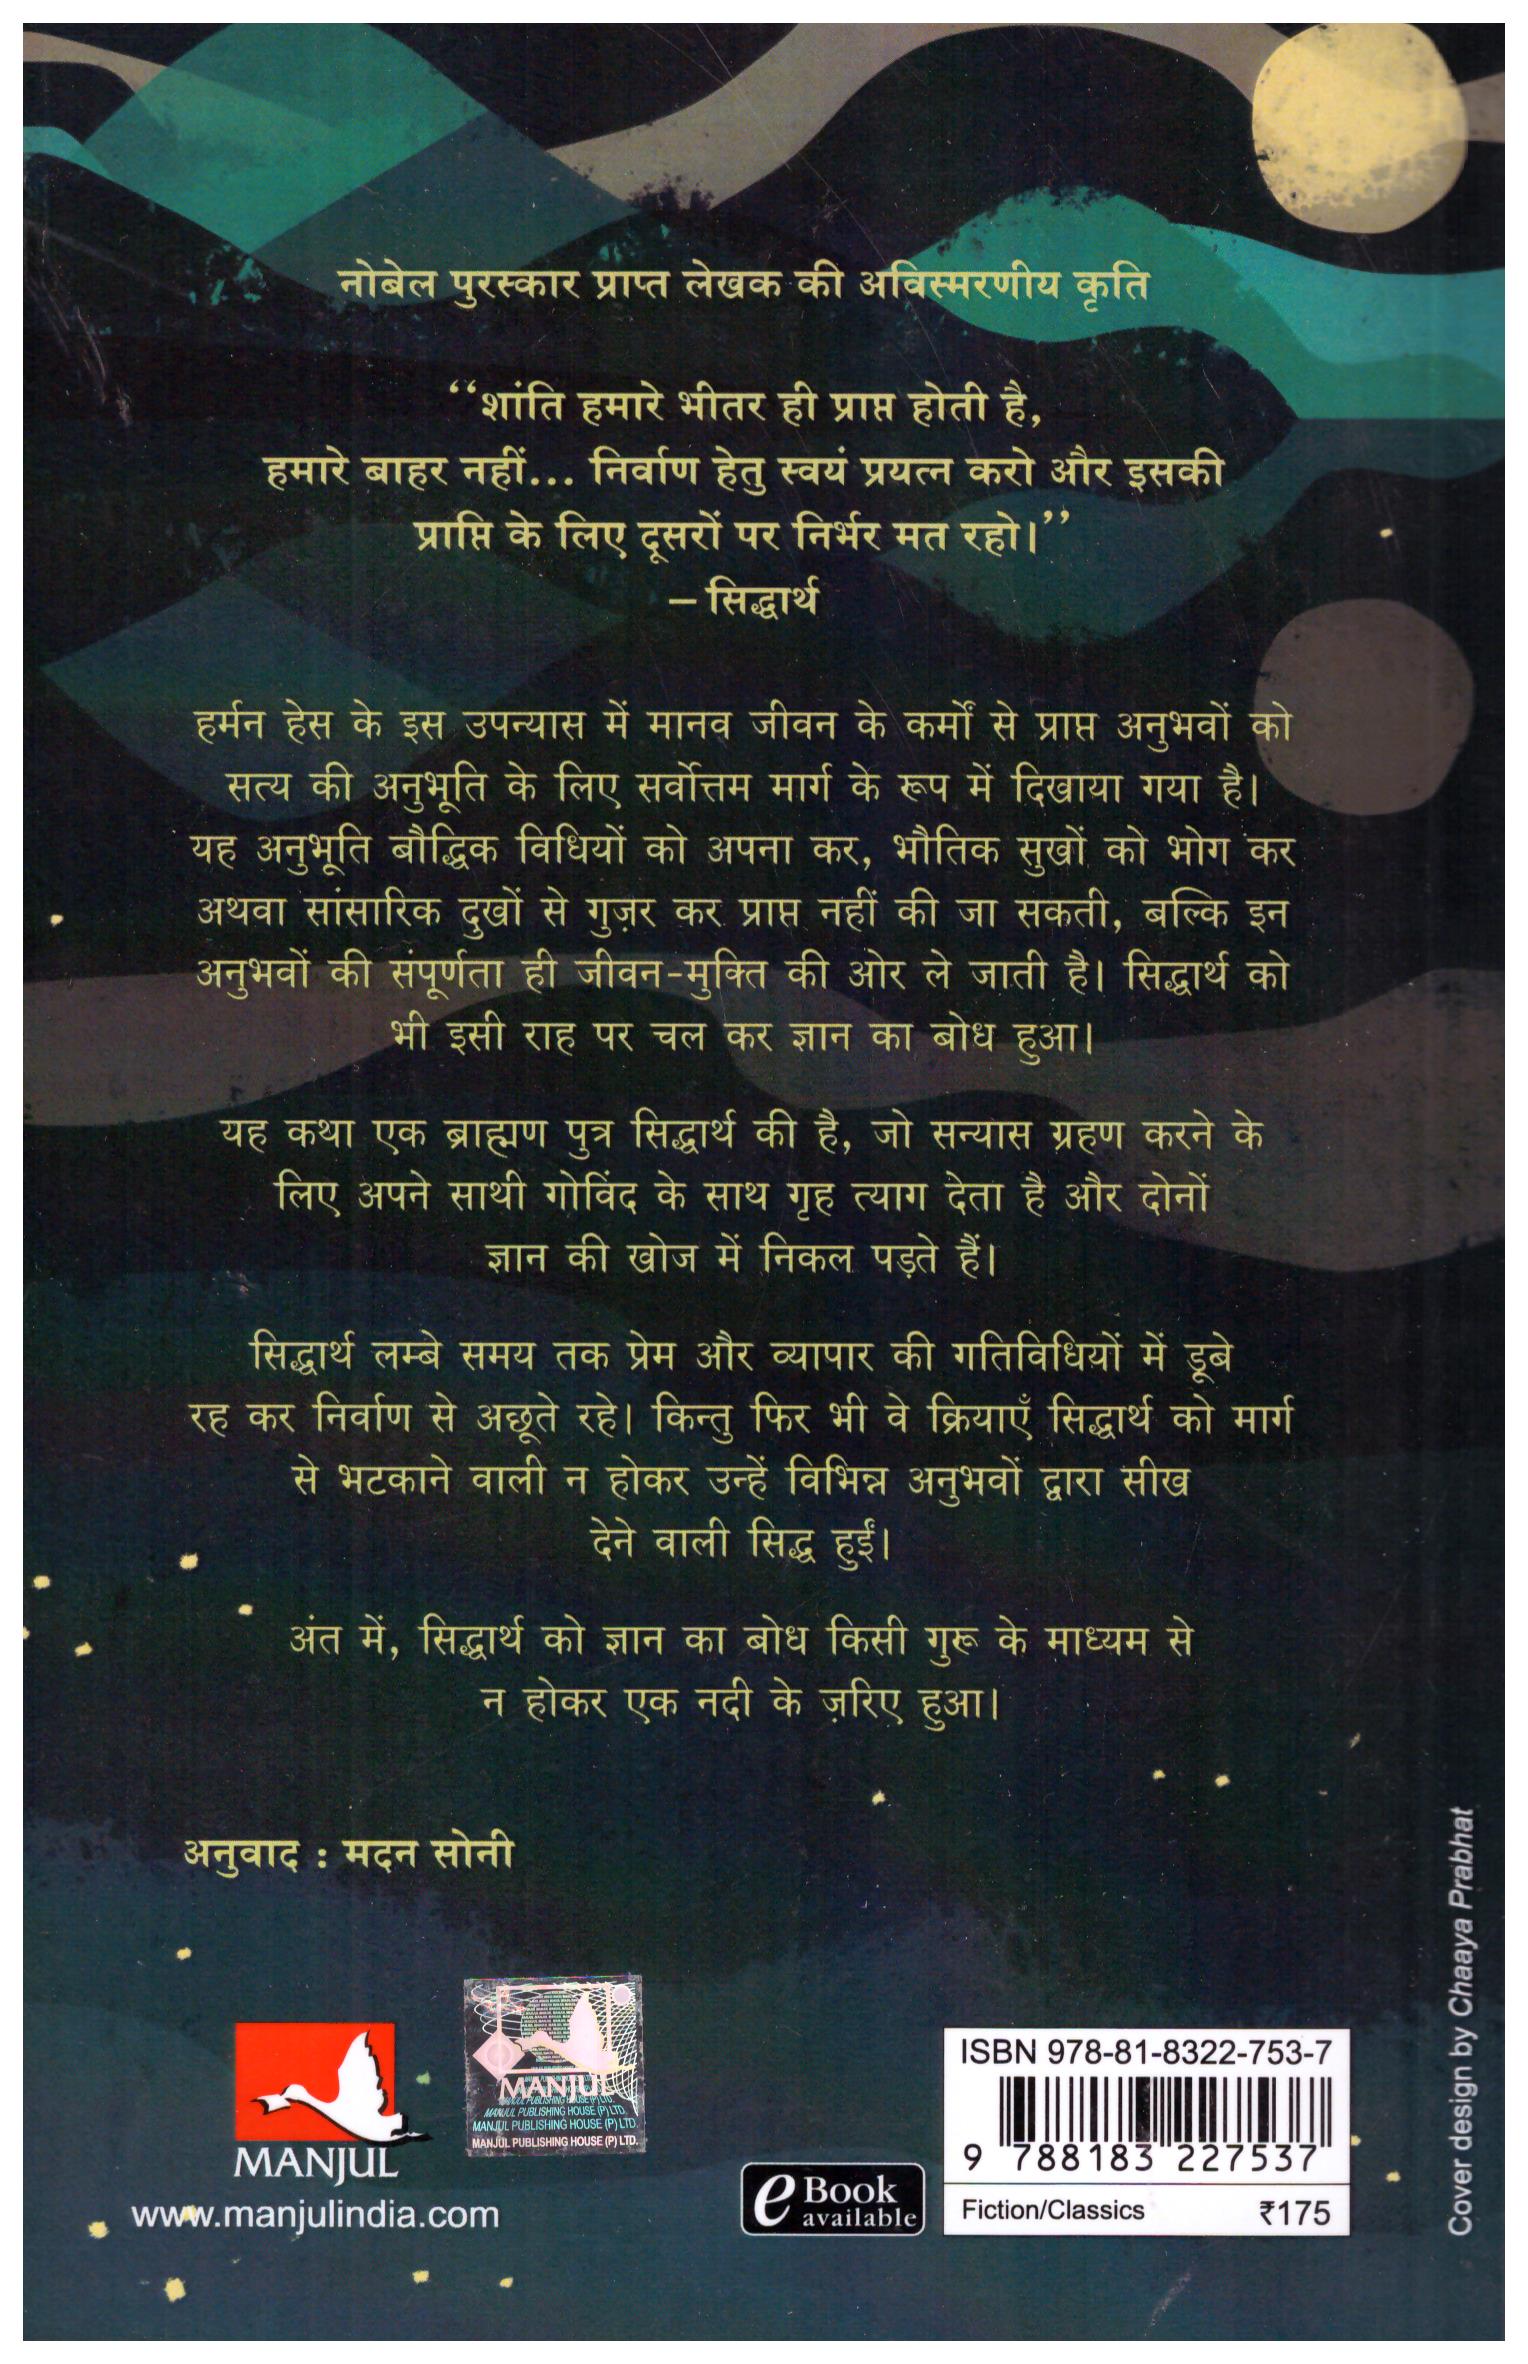 नोबेल पुरस्कार प्राप्त लेखक की अविस्मरणीय कृति
‘‘शांति हमारे भीतर ही प्राप्त होती है,
हमारे बाहर नहीं... निर्वाण हेतु स्वयं प्रयत्न करो और इसकी
प्राप्ति के लिए दूसरों पर निर्भर मत रहो।’’
– सिद्धार्थ
हर्मन हेस के इस उपन्यास में मानव जीवन के कर्मों से प्राप्त अनुभवों को
सत्य की अनुभूति के लिए सर्वोत्तम मार्ग के रूप में दिखाया गया है।
यह अनुभूति बौद्धिक विधियों को अपना कर, भौतिक सुखों को भोग कर
अथवा सांसारिक दुखों से गुज़र कर प्राप्त नहीं की जा सकती, बल्कि इन
अनुभवों की संपूर्णता ही जीवन-मुक्ति की ओर ले जाती है। सिद्धार्थ को
भी इसी राह पर चल कर ज्ञान का बोध हुआ।
यह कथा एक ब्राह्मण पुत्र सिद्धार्थ की है, जो सन्यास ग्रहण करने के
लिए अपने साथी गोविंद के साथ गृह त्याग देता है और दोनों
ज्ञान की खोज में निकल पड़ते हैं।
सिद्धार्थ लम्बे समय तक प्रेम और व्यापार की गतिविधियों में डूबे
रह कर निर्वाण से अछूते रहे। किन्तु फिर भी वे क्रियाएँ सिद्धार्थ को मार्ग
से भटकाने वाली न होकर उन्हें विभिन्न अनुभवों द्वारा सीख
देने वाली सिद्ध हुईं।
अंत में, सिद्धार्थ को ज्ञान का बोध किसी गुरू के माध्यम से
न होकर एक नदी के ज़रिए हुआ।
अनुवाद : मदन सोनी
MANJUL
www.manjulindia.com
MANJUL
MANJUL PUBLISHING HOUSE (P) LTD.
MANJUL PUBLISHING HOUSE (P) LTD.
MANJUL PUBLISHING HOUSE (P) LTD.
MANJUL PUBLISHING HOUSE (P) LTD.
eBook
available
ISBN 978-81-8322-753-7
9 788183 227537
Fiction/Classics ₹175
Cover design by Chaaya Prabhat